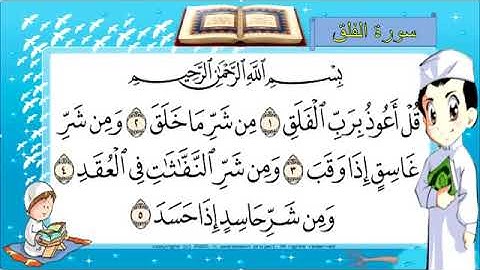 سورة الفلق
بِسْمِ اللَّهِ الرَّحْمَٰنِ الرَّحِيمِ
قُلْ أَعُوذُ بِرَبِّ ٱلْفَلَقِ ١ مِن شَرِّ مَا خَلَقَ ٢ وَمِن شَرِّ
غَاسِقٍ إِذَا وَقَبَ ٣ وَمِن شَرِّ ٱلنَّفَّٰثَٰتِ فِى ٱلْعُقَدِ ٤
وَمِن شَرِّ حَاسِدٍ إِذَا حَسَدَ ٥